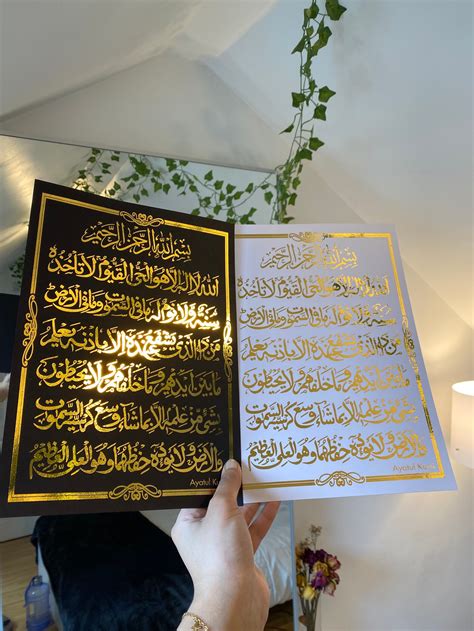 بسم الله الرحمن الرحيم
الله لا اله الا هو الحي القيوم لا تأخذه
سنة ولا نوم له ما في السموت وما في الارض
من ذا الذي يشفع عنده الا باذنه يعلم
ما بين ايديهم وما خلفهم ولا يحيطون
بشيء من علمه الا بما شاء وسع كرسيه السموت
والارض ولا يوده حفظهما وهو العلي العظيم
Ayatul
بسم الله الرحمن الرحيم
الله لا اله الا هو الحي القيوم لا تأخذه
سنة ولا نوم له ما في السموت وما في الارض
من ذا الذي يشفع عنده الا باذنه يعلم
ما بين ايديهم وما خلفهم ولا يحيطون
بشيء من علمه الا بما شاء وسع كرسيه السموت
والارض ولا يوده حفظهما وهو العلي العظيم
Ayatul